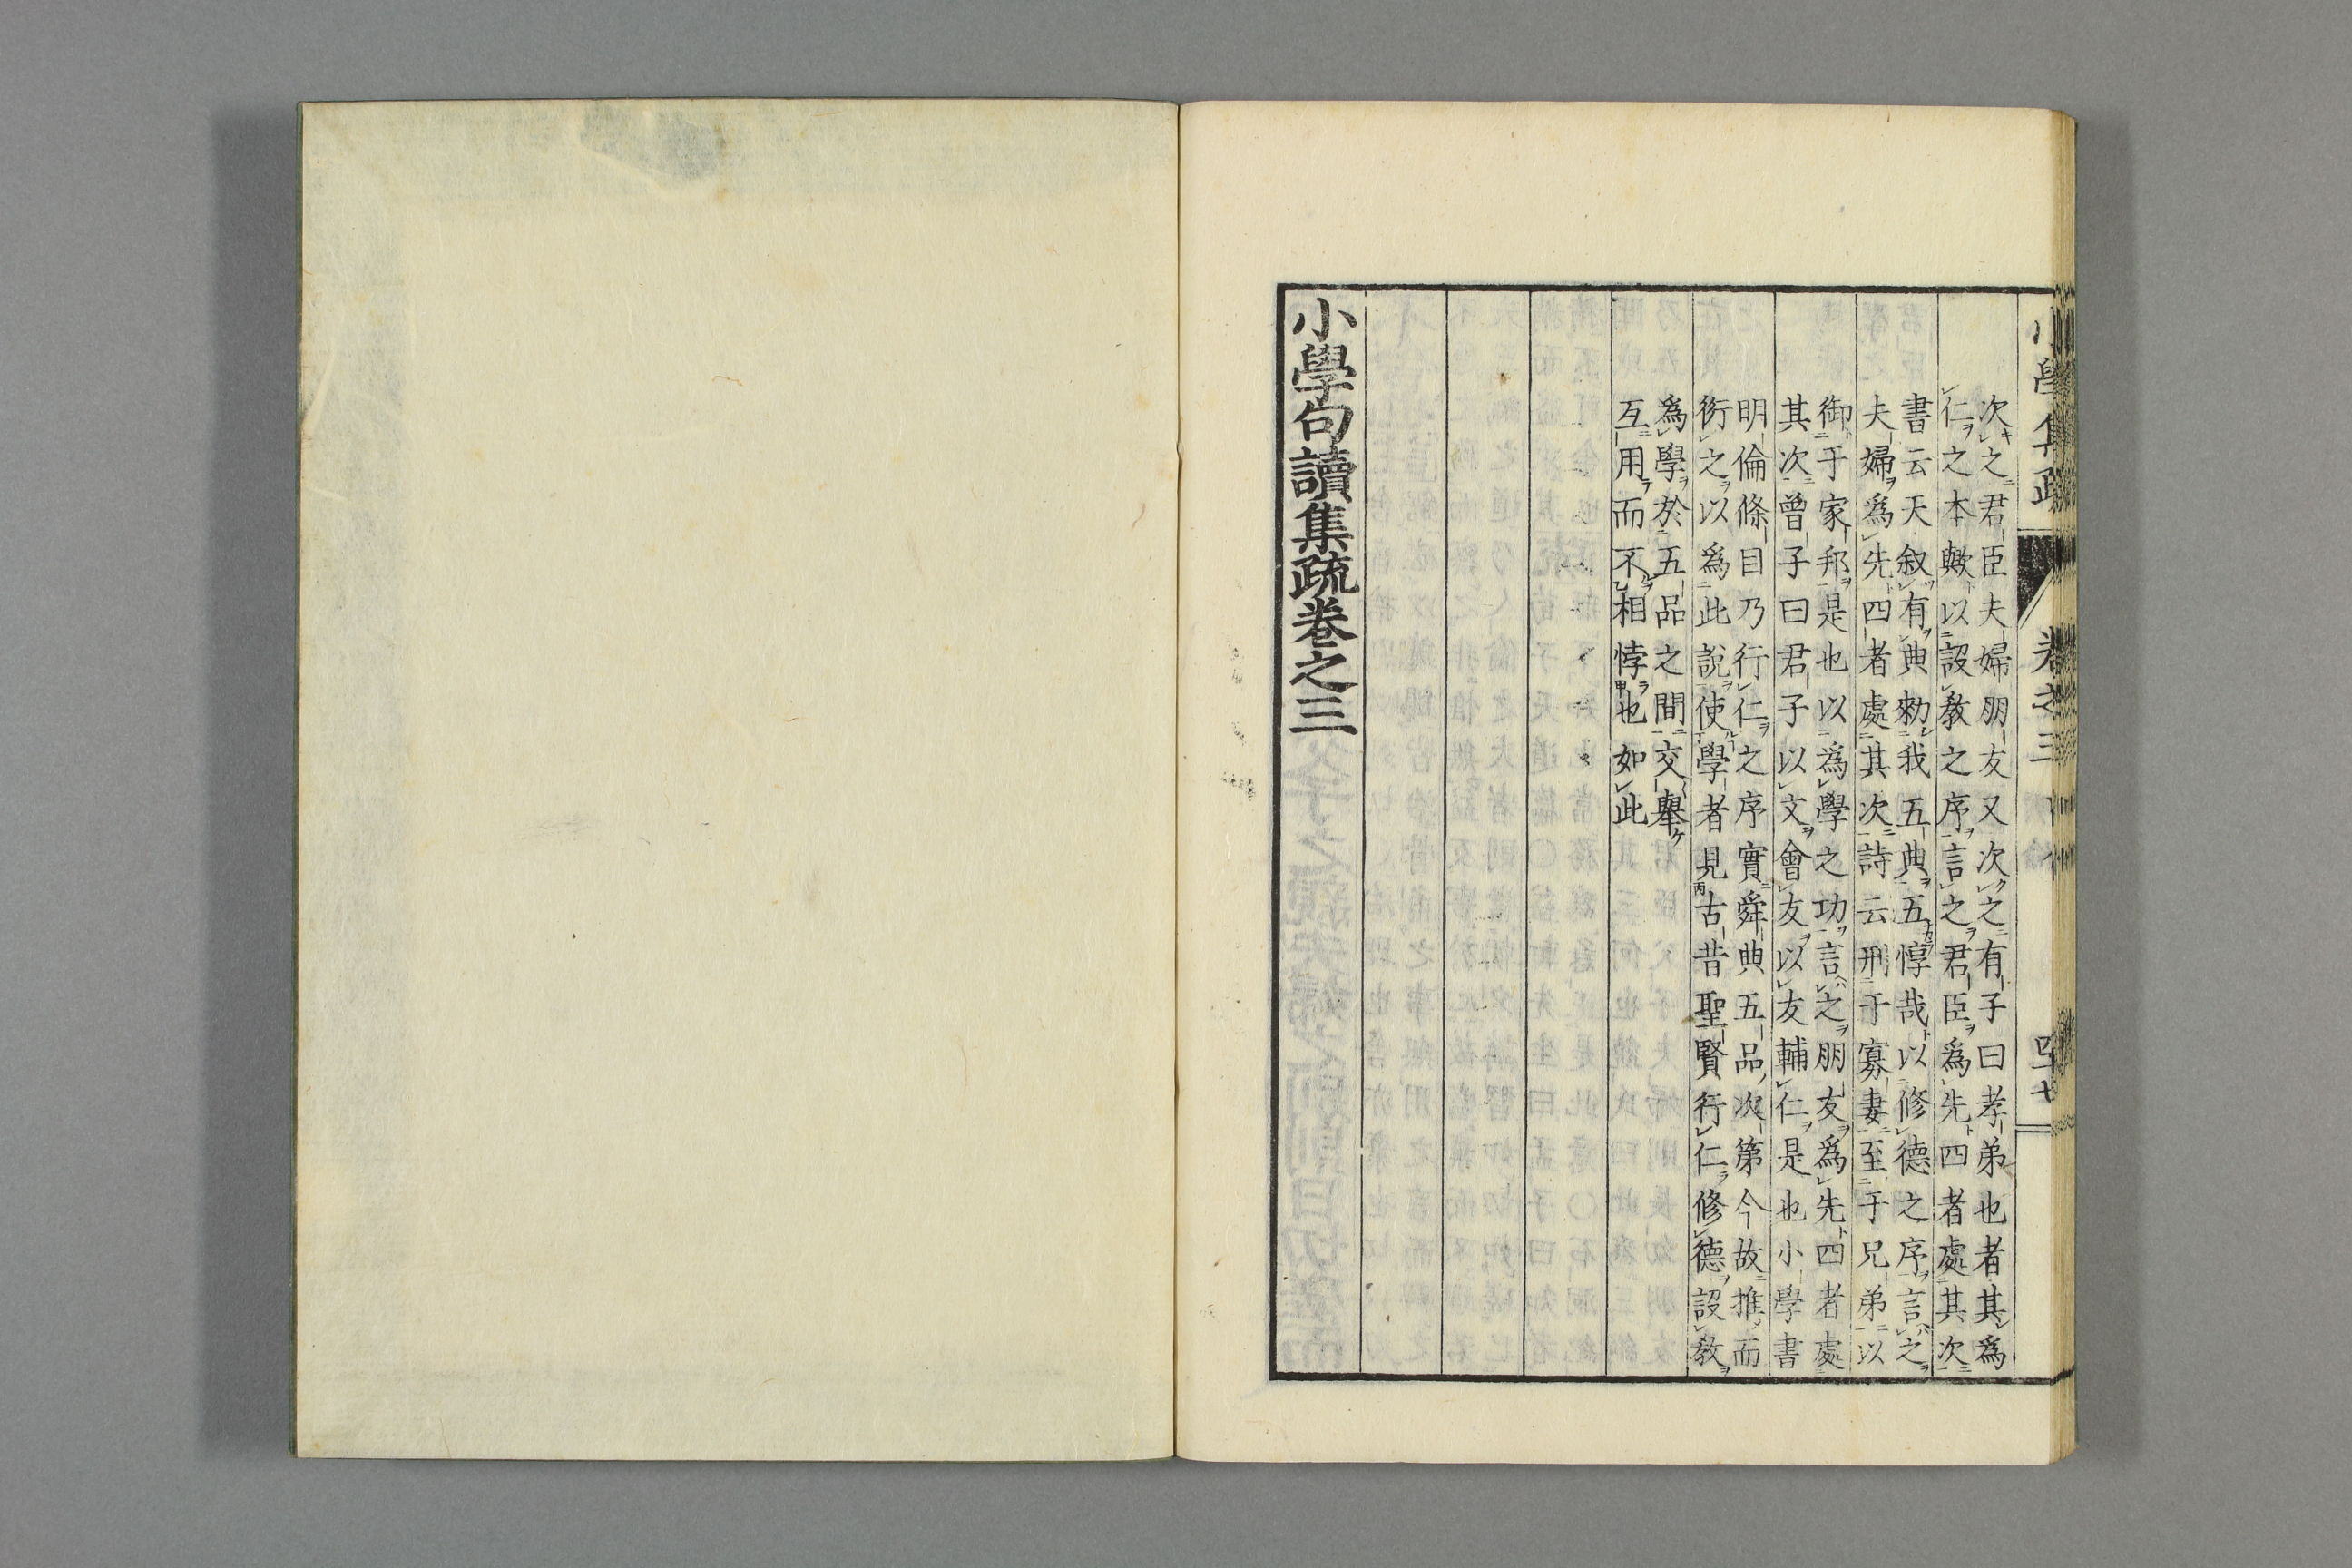 小學集疏 卷之三 四十七
次之君臣夫婦朋友又次之有子曰孝弟也者其爲
仁之本歟以設教之序言之君臣爲先四者處其次
書云天叙有典勑我五典五惇哉以修德之序言之
夫婦爲先四者處其次詩云刑于寡妻至于兄弟以
御于家邦是也以爲學之功言之朋友爲先四者處
其次曾子曰君子以文會友以友輔仁是也小學書
明倫條目乃行仁之序實舜典五品次第今故推而
衍之以爲此說使學者見古昔聖賢行仁修德設教
爲學於五品之間交舉
互用而不相悖也如此
小學句讀集疏卷之三